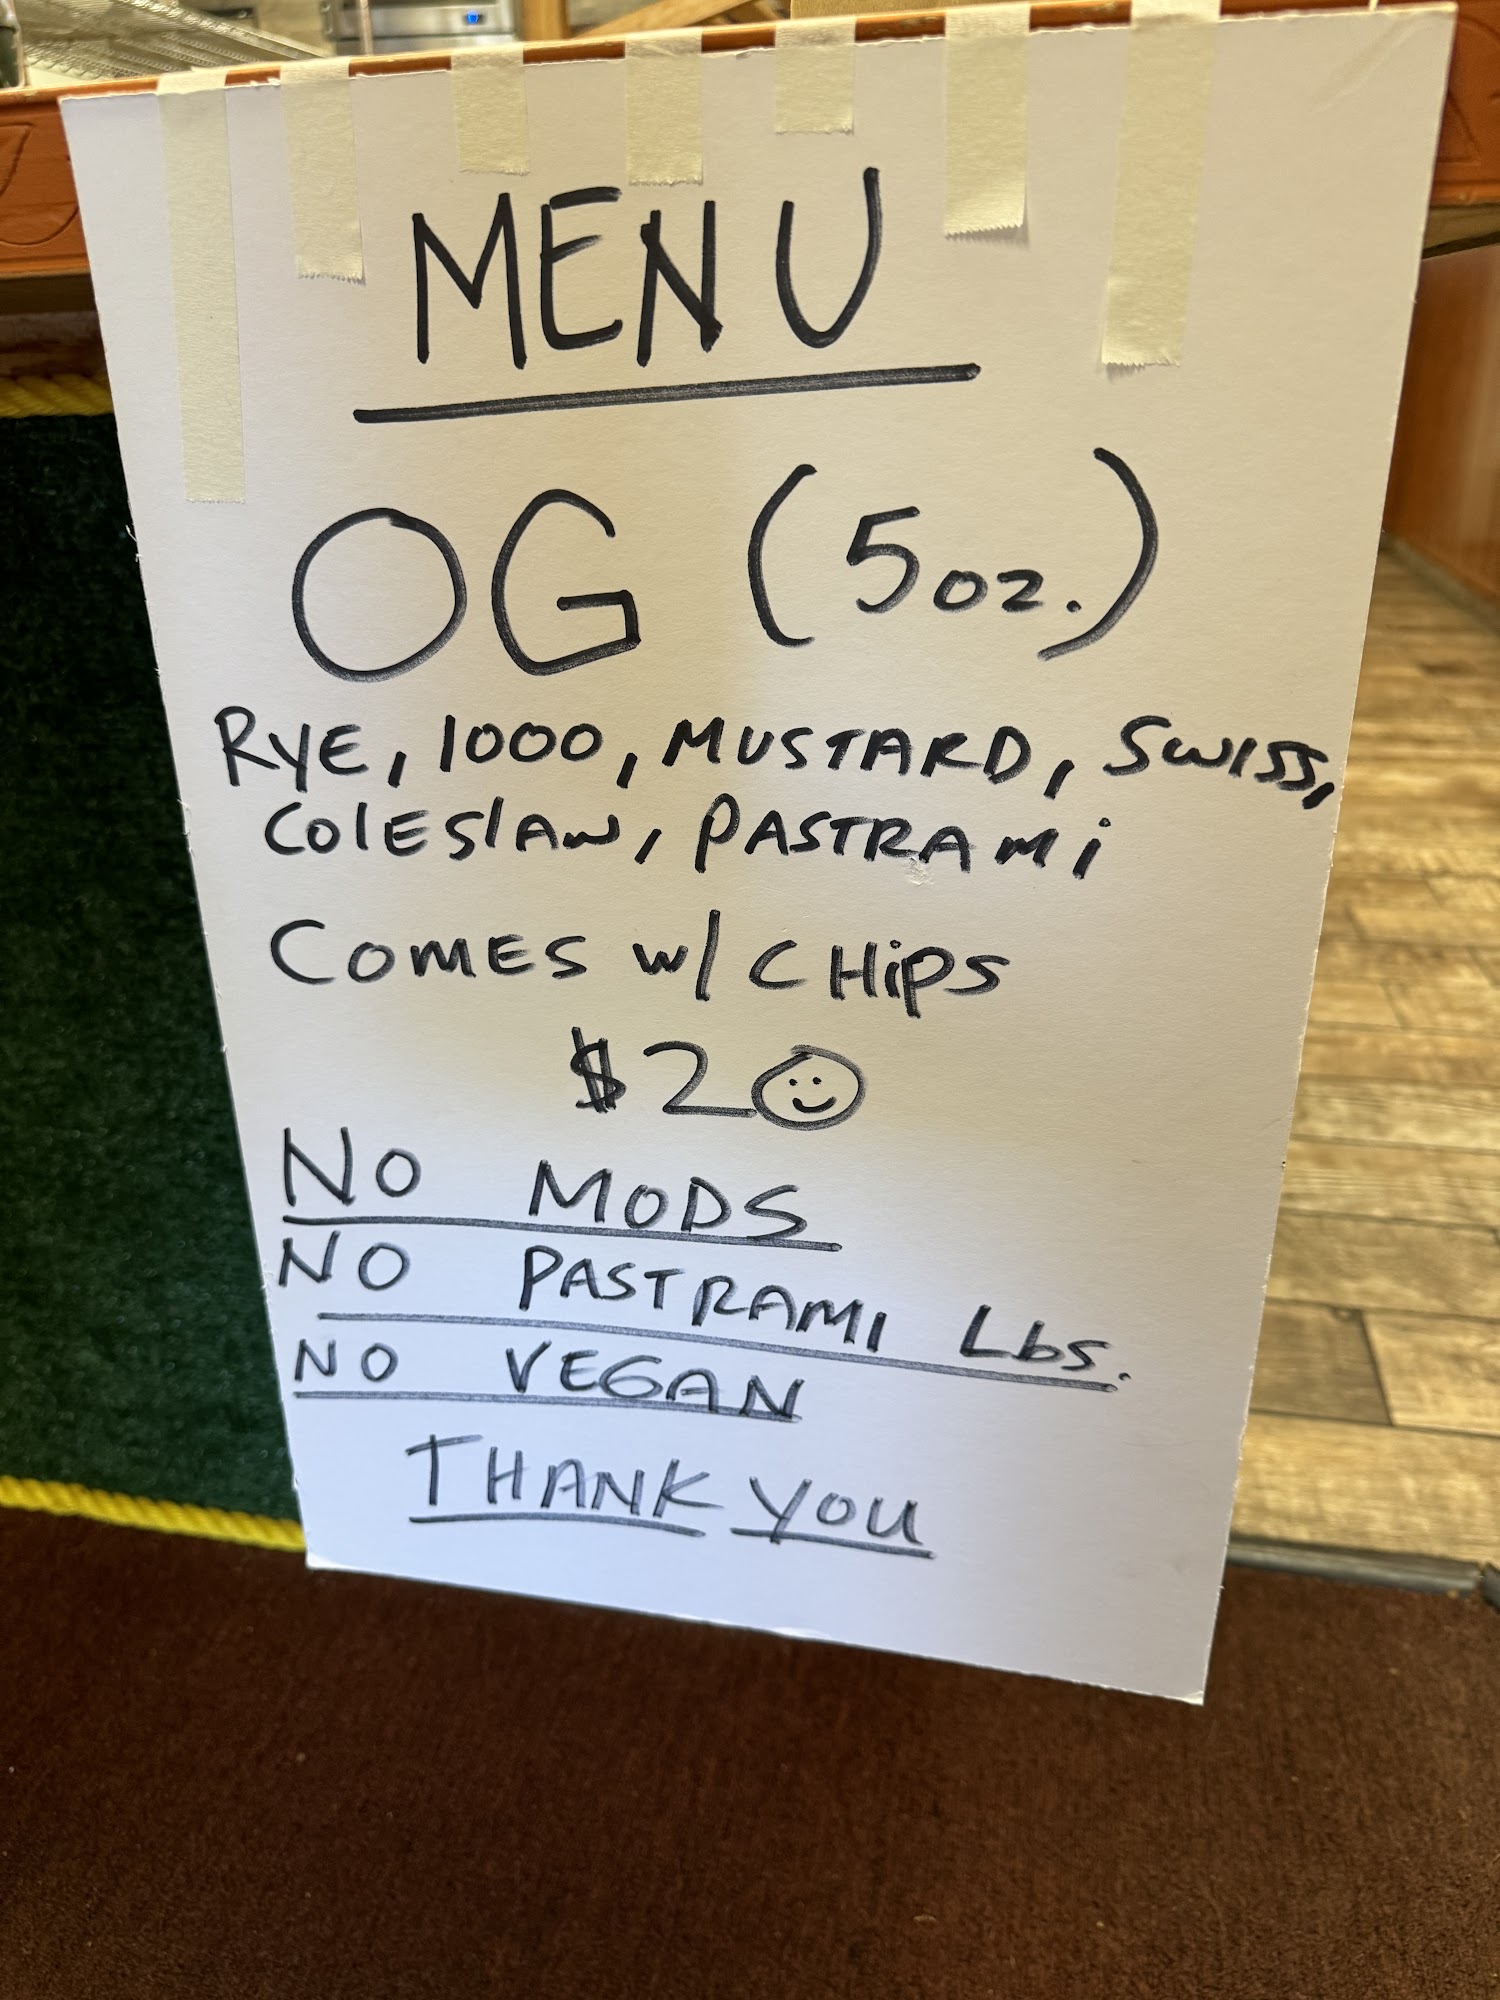 MENU
OG (5oz.)
RYE, 1000, MUSTARD, SWISS,
COlESlAW, PASTRAMi
COMES W/ CHiPS
$20
NO MODS
NO PASTRAMI Lbs.
NO VEGAN
THANK YOU